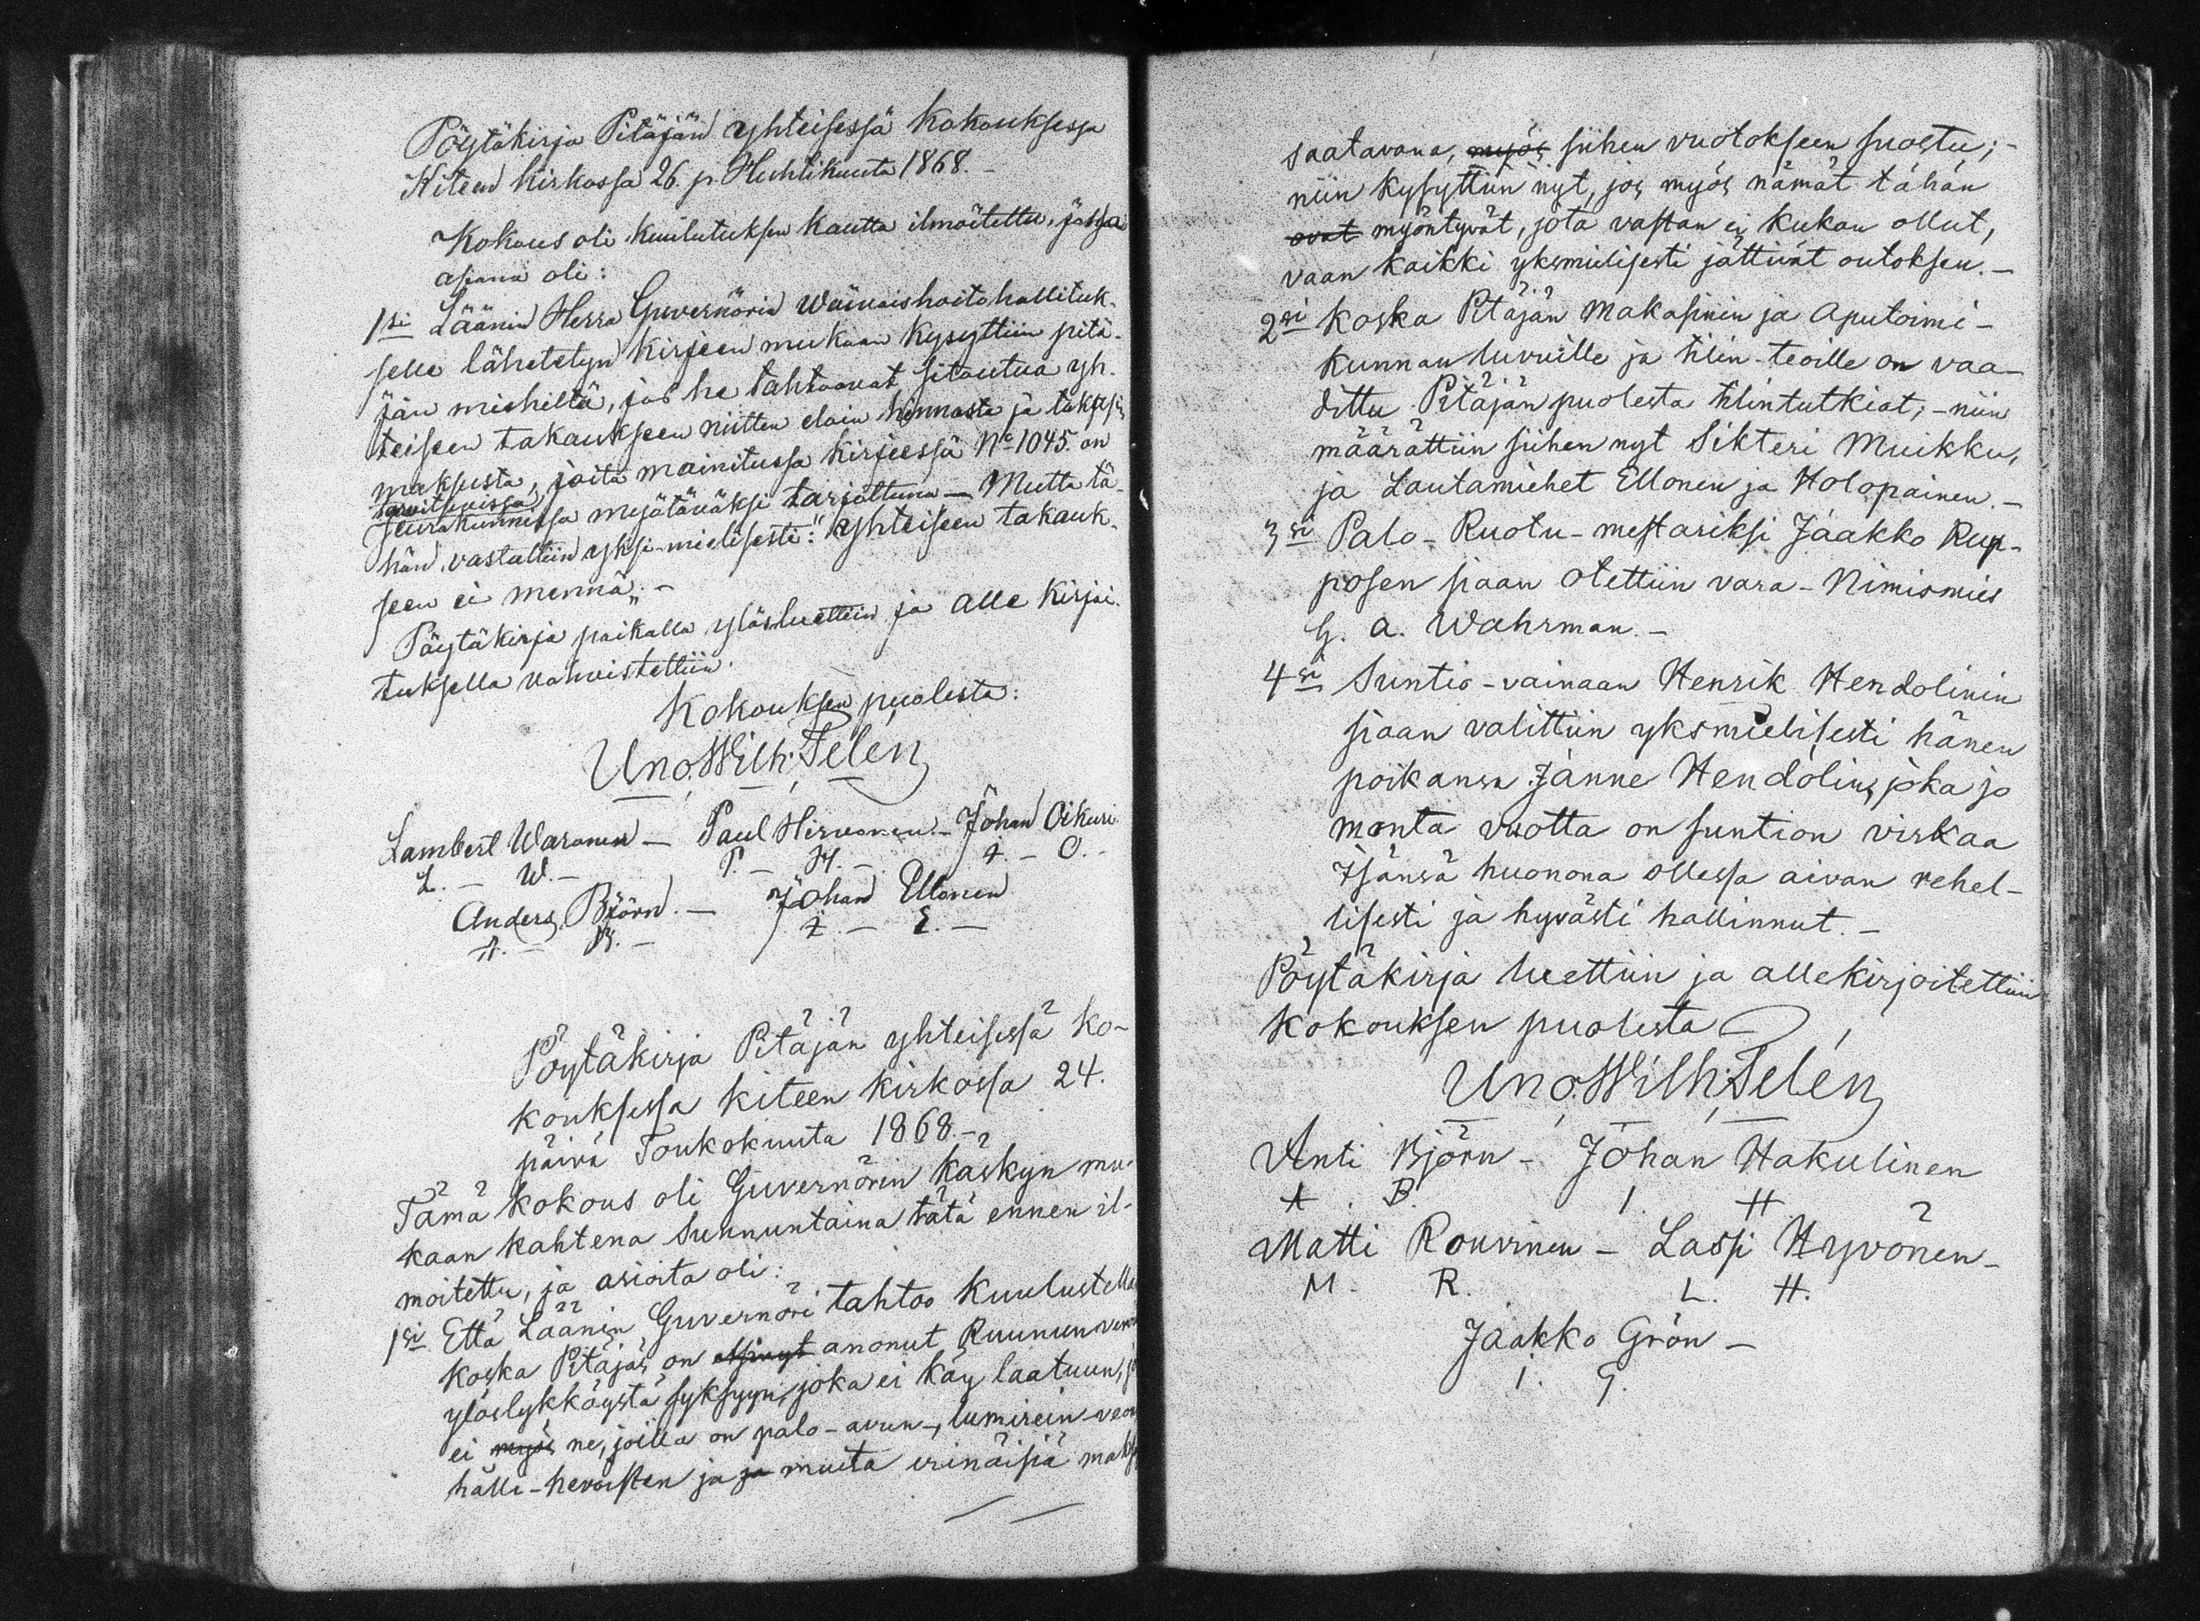 Pöytäkirja Pitäjän yhteisessä kokouksessa
Kiteen kirkossa 26. p. Huhtikuuta 1868. –
Kokous oli kuulutuksen kautta ilmoitettu, jossa
asiana oli:
1si Läänin Herra Guvernörin Waivaishoitohallituk-
selle lähetetyn kirjeen mukaan kysyttiin pitä-
jän miehiltä, jos he tahtoovat sitoutua yh-
teiseen takaukseen niitten elain hinnasta ja
maksusta, joita mainitussa kirjeessä No 1045. on
tarvitsevissa
seurakunnissa myötäväksi tarjottuna – Mutta tä-
hän vastattiin yksi-mielisesti: "Yhteiseen takauk-
seen ei mennä". –
Pöytäkirja paikalla ylösluettiin ja alle kirjoi-
tuksella vahvistettiin.
Kokouksen puolesta:
Uno. Wilh. Telén
Lambert Waronen – Paul Hirvonen. – Johan Oikuri
L. – W. – P. – H. – J. – O. –
Anders Björn. – Johan Ellonen
A. – B. – J. – E. –
Pöytäkirja Pitäjän yhteisessä ko-
kouksessa Kiteen kirkossa 24.
päivä Toukokuuta 1868. –
Tämä kokous oli Guvernörin käskyn mu-
kaan kahtena Sunnuntaina tätä ennen il-
moitettu, ja asioita oli:
1si Että Läänin Guvernöri tahtoo kuulustella
koska Pitäjäs on anonut Ruunun
ylöslykköystä syksyyn, joka ei käy laatuun,
ei myös ne, joilla on palo-avun-,
hälli-hevoisten ja ja muita erinäisiä
saatavana, myös siihen vuotokseen suostu; –
niin kysyttiin nyt, jos myös nämät tähän
ovat myöntyvät, jota vastan ei kukan ollut,
vaan kaikki yksmielisesti jättivät outoksen. –
2si Koska Pitäjän Makasinin ja Aputoimi-
kunnan luvuille ja tilin-teoille on vaa-
dittu Pitäjän puolesta tilintutkiat; – niin
määrättiin siihen nyt Sikteri Muikku,
ja Lautamiehet Ellonen ja Holopainen. –
3si Palo-Ruotu-mestariksi Jaakko Rup-
posen siaan otettiin vara-Nimismies
G. A. Wahrman. –
4si Suntio-vainaan Henrik Hendolinin
siaan valittiin yksmielisesti hänen
poikansa Janne Hendolin, joka jo
monta vuotta on suntion virkaa
Isänsä huonona ollessa aivan rehel-
lisesti ja hyvästi hallinnut. –
Pöytäkirja luettiin ja allekirjoitettiin
Kokouksen puolesta
Uno. Wilh. Telén
Anti Björn – Johan Hakulinen
A. B. I. H.
Matti Rouvinen – Lassi Hyvönen –
M. R. L. H.
Jaakko Grön –
I. G.